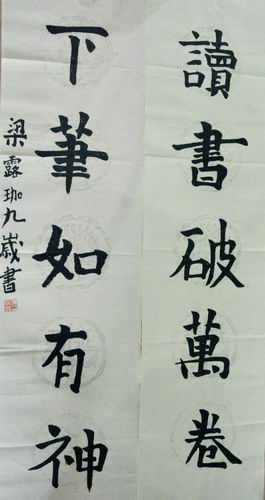 讀書破萬卷
下筆如有神
梁露珈九歲書